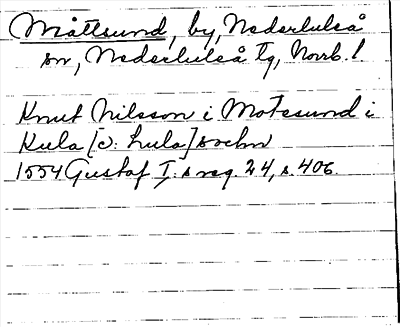 Måttsund, by, Nederluleå
sn, Nederluleå tg, Norrb. l.
Knut Nilsson i Motesund i
Kula [ɔ: Lula] sochn
1554 Gustaf I:s reg. 24, s. 406.